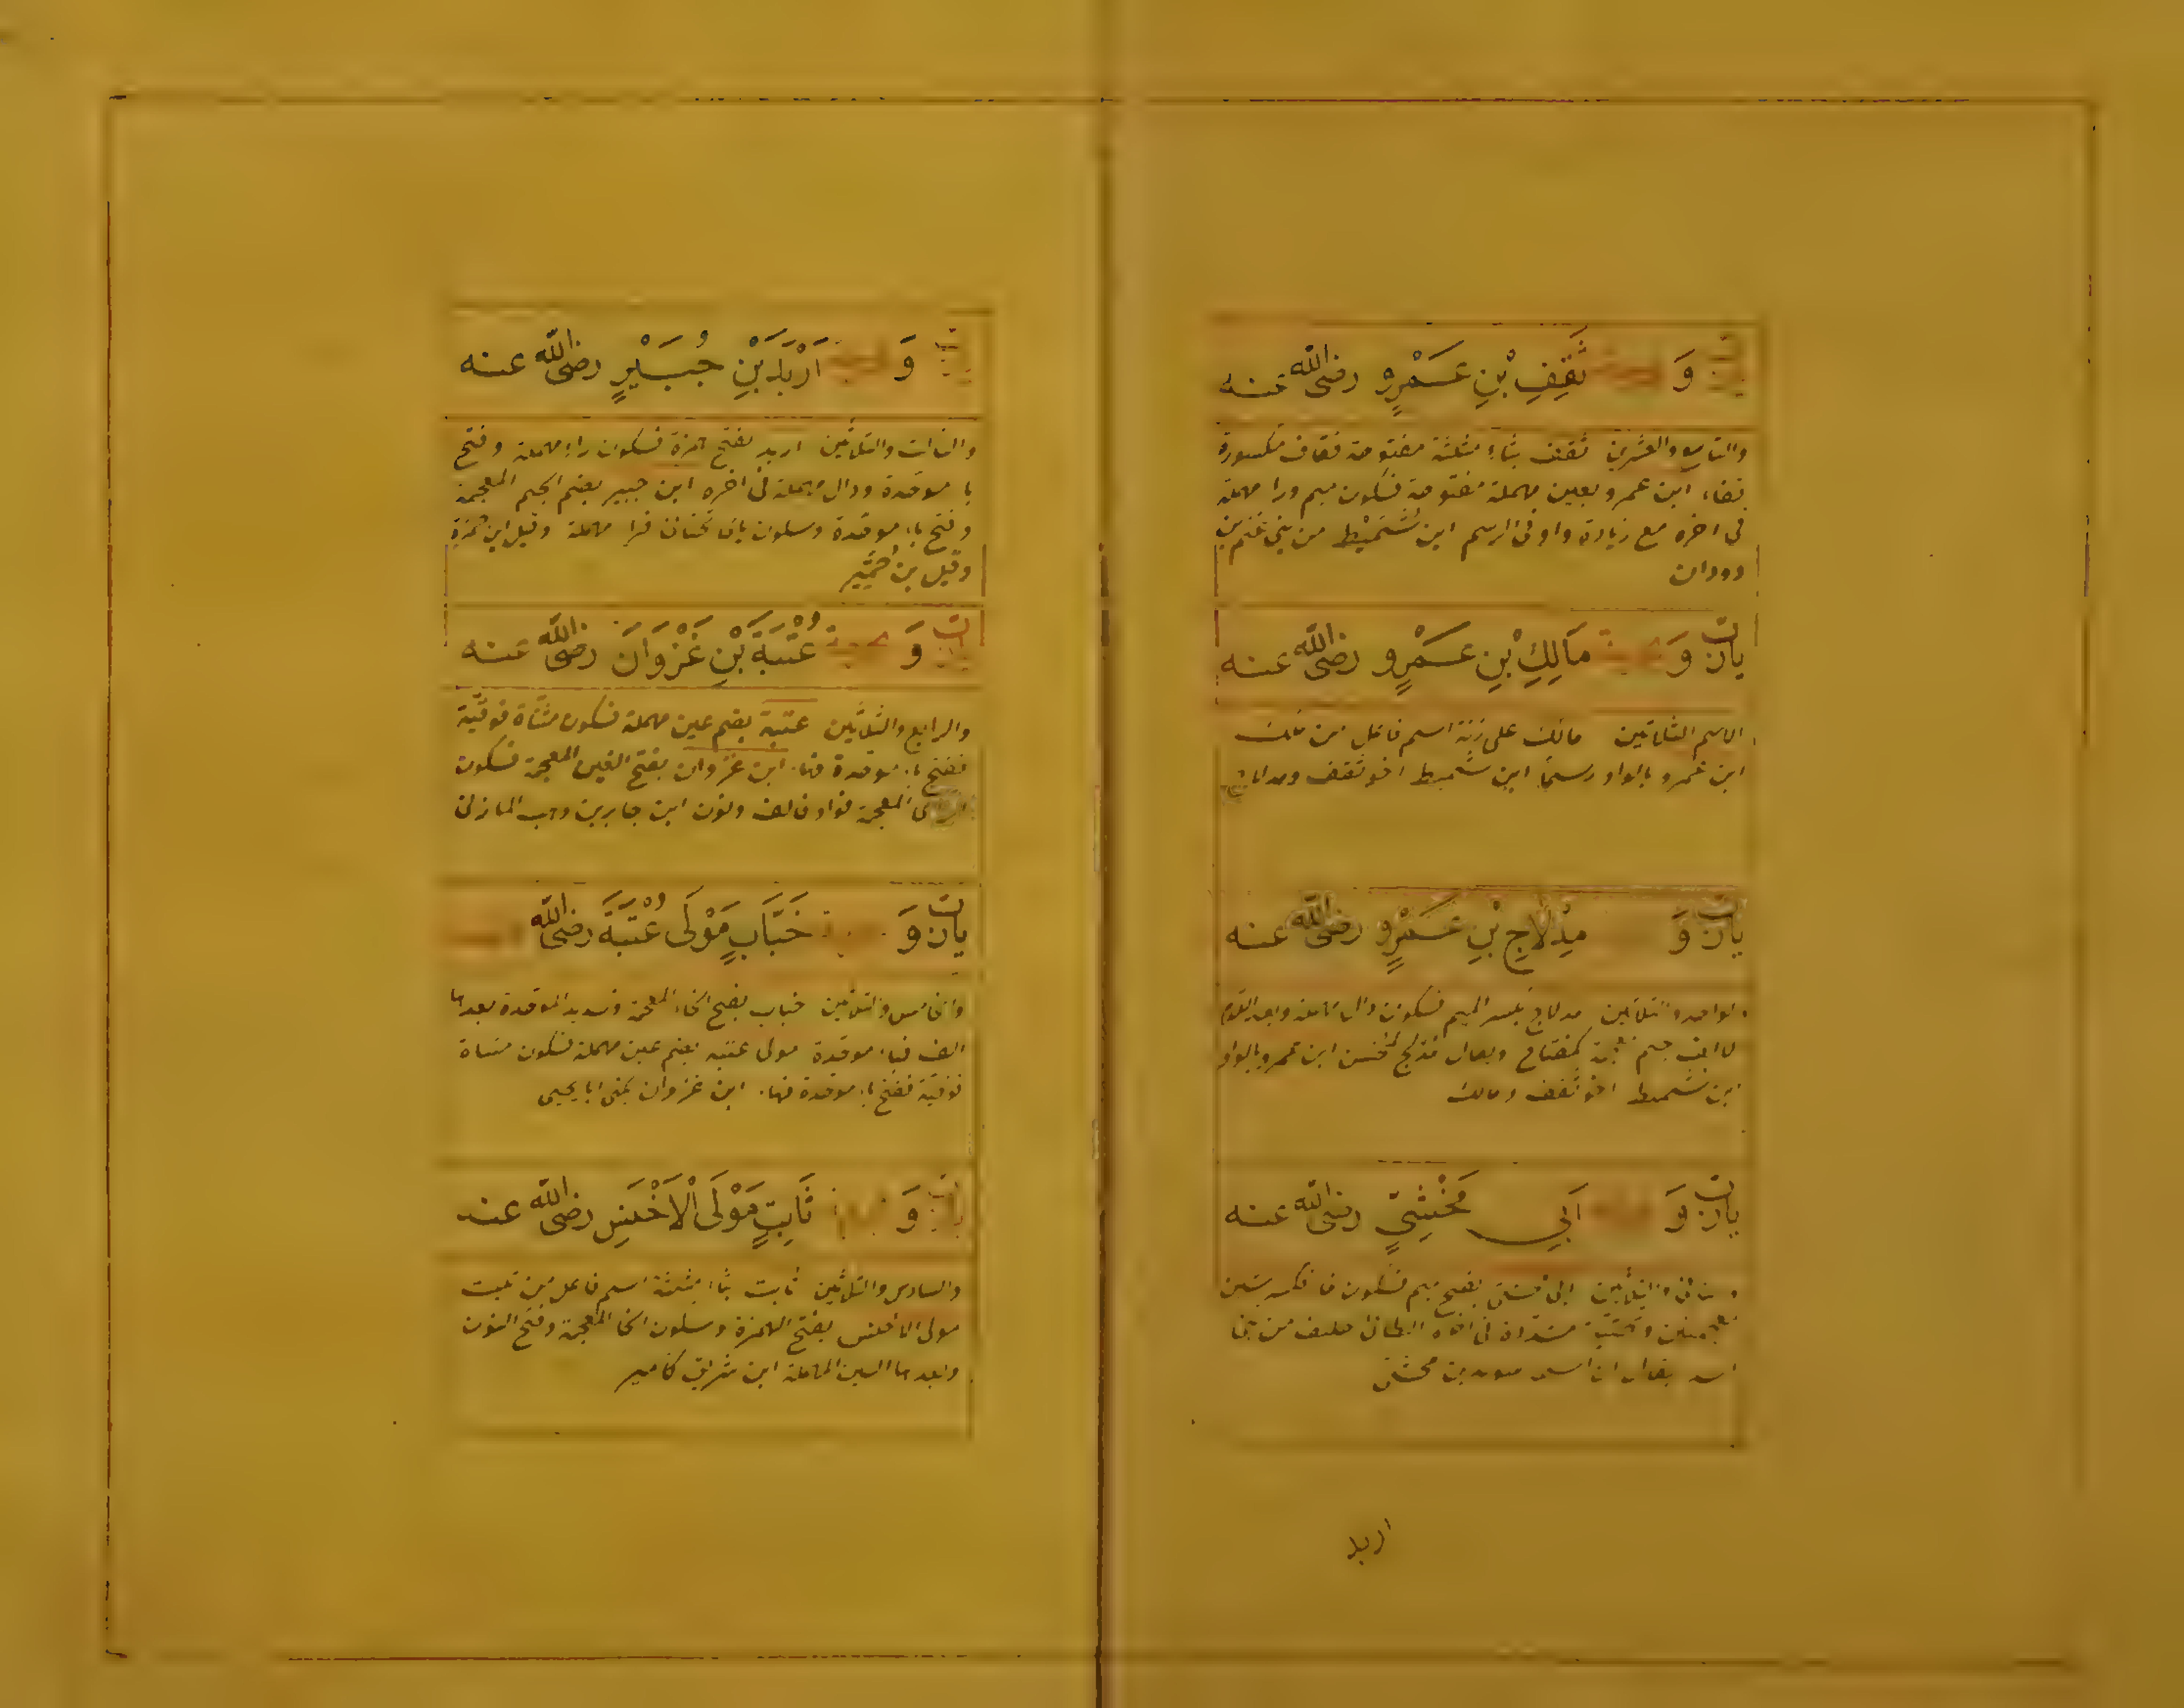 وَ ثَقِفِ بْنِ عَمْرٍو رضى الله عنه
والتاسع والعشرين ثقف بثاء مثلثة مفتوحة فقاف مكسورة
ففاء ابن عمرو بعين مهملة مفتوحة فسكون ميم ورا مهملة
فى اخره مع زيادة واو فى الرسم ابن شُمَيْط من بنى غنم بن
دودان
وَ مَالِكِ بْنِ عَمْرٍو رضى الله عنه
الاسم الثلاثين مالك على زنة اسم فاعل من ملك
ابن عمرو بالواو رسما ابن شميط اخو ثقف ومدلاج
وَ مِدْلَاجِ بْنِ عَمْرٍو رضى الله عنه
والواحد والثلاثين مدلاج بكسر الميم فسكون دال مهملة وبعد اللام
الف جيم كمفتاح ويقال مدلج كمحسن ابن عمرو بالواو
ابن شميط اخو ثقف ومالك
وَ اَبِي مَخْشِيٍّ رضى الله عنه
والثانى والثلاثين ابى مخشى بفتح ميم فسكون خا فكسر شين
معجمتين وتحتية مشددة فى اخره الطائى حليف من بنى
اسد يقال ان اسمه سويد بن مخشى
اربد
وَ اَرْبَدَ بْنِ جُبَيْرٍ رضى الله عنه
والثالث والثلاثين اربد بفتح همزة فسكون راء مهملة وفتح
با موحدة ودال مهملة فى اخره ابن جبير بضم الجيم المعجمة
وفتح باء موحدة وسكون ياء تحتانى فرا مهملة وقيل ابن حمزة
وقيل بن حُمَيِّر
وَ عُتْبَةَ بْنِ غَزْوَانَ رضى الله عنه
والرابع والثلاثين عتبة بضم عين مهملة فسكون مثناة فوقية
ففتح باء موحدة فهاء ابن غزوان بفتح الغين المعجمة فسكون
الزاى المعجمة فواو فالف ونون ابن جابر بن وهب المازنى
وَ خَبَّابٍ مَوْلَى عُتْبَةَ رضى الله
والخامس والثلاثين خباب بفتح الخاء المعجمة وتشديد الموحدة بعدها
الف فباء موحدة مولى عتبه بضم عين مهملة فسكون مثناة
فوقية ففتح باء موحدة فهاء ابن غزوان يكنى ابا يحيى
وَ ثَابِتٍ مَوْلَى الْاَخْنَسِ رضى الله عنه
والسادس والثلاثين ثابت بثاء مثلثة اسم فاعل من ثبت
مولى الاخنس بفتح الهمزة وسكون الخا المعجمة وفتح النون
وبعدها السين المهملة ابن شريق كامير